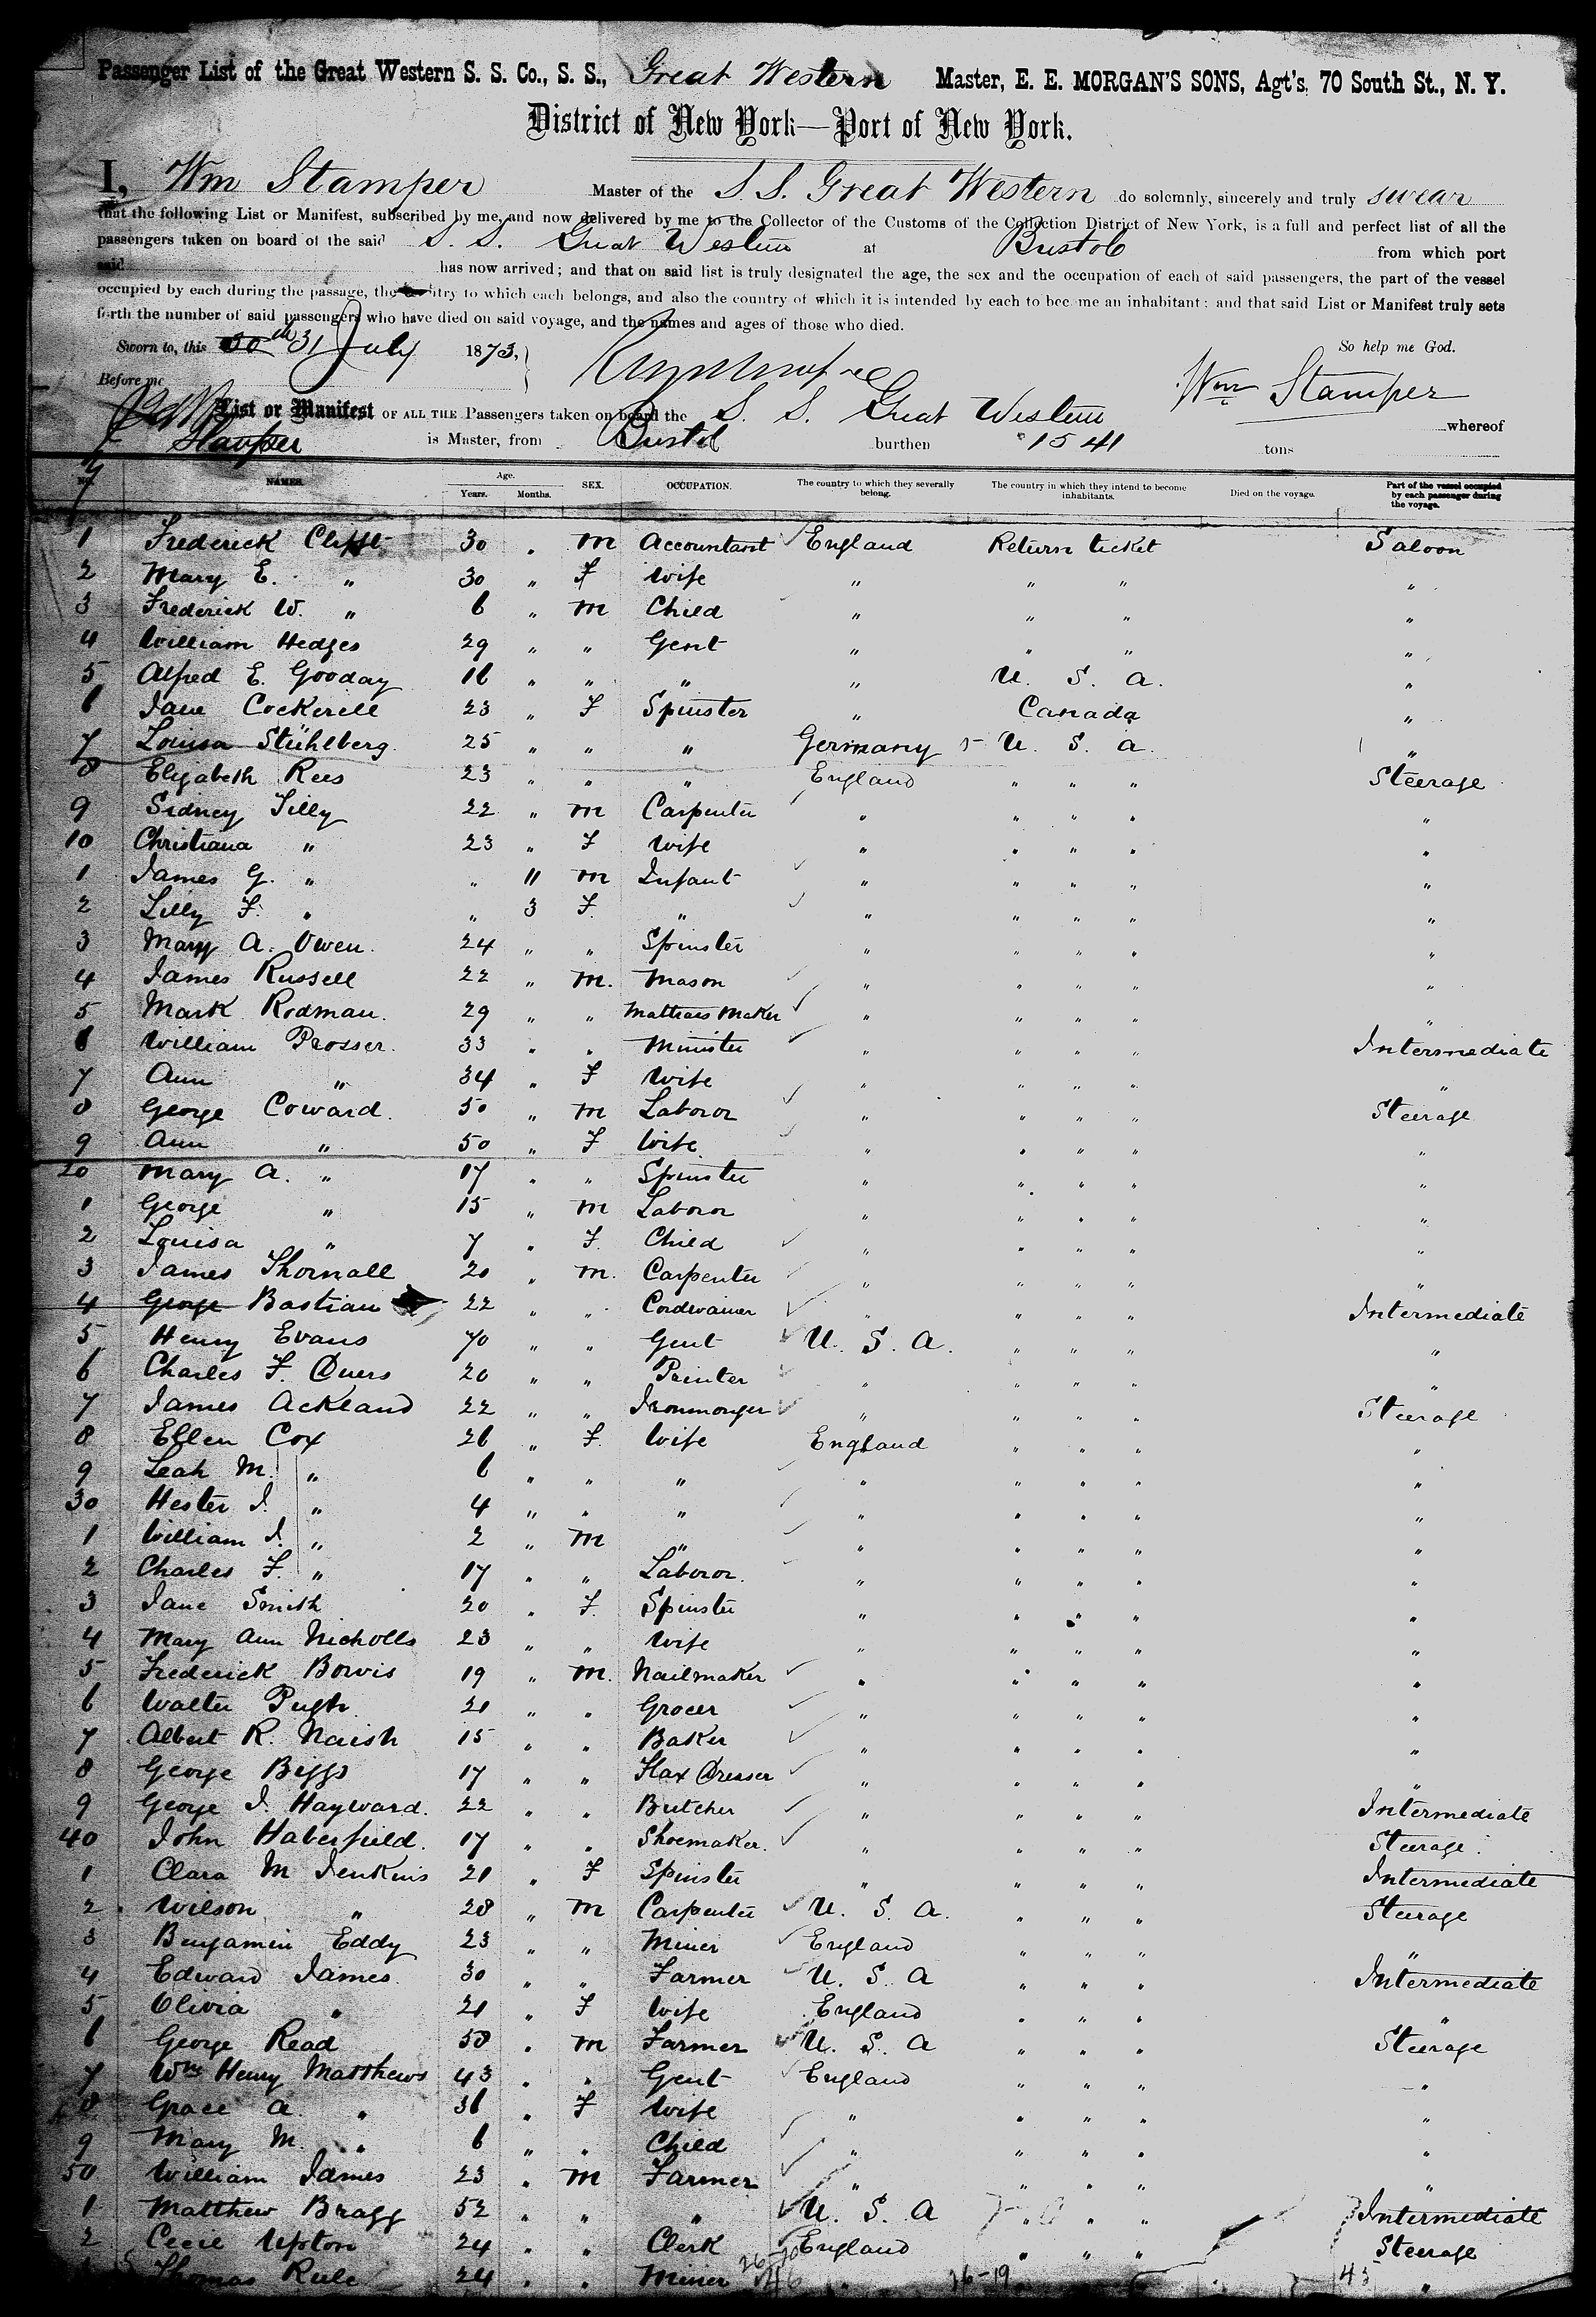 Passenger List of the Great Western S. S. Co., S. S., Great Western Master, E. E. MORGAN'S SONS, Agt's, 70 South St., N. Y.
District of New York—Port of New York.
I, Wm Stamper Master of the S. S. Great Western do solemnly, sincerely and truly swear
that the following List or Manifest, subscribed by me, and now delivered by me to the Collector of the Customs of the Collection District of New York, is a full and perfect list of all the
passengers taken on board of the said S. S. Great Western at Bristol from which port
said has now arrived; and that on said list is truly designated the age, the sex and the occupation of each of said passengers, the part of the vessel
occupied by each during the passage, the country to which each belongs, and also the country of which it is intended by each to become an inhabitant; and that said List or Manifest truly sets
forth the number of said passengers who have died on said voyage, and the names and ages of those who died.
Sworn to, this 30th 31 July 1873, So help me God.
Before me Wm Stamper
List or Manifest OF ALL THE Passengers taken on board the S. S. Great Western whereof
Stamper is Master, from Bristol burthen 1541 tons
No. NAMES. Age. Years. Months. SEX. OCCUPATION. The country to which they severally belong. The country in which they intend to become inhabitants. Died on the voyage. Part of the vessel occupied by each passenger during the voyage.
1 Frederick Clift 30 " M Accountant England Return ticket Saloon
2 Mary E. " 30 " F Wife " " " "
3 Frederick W. " 6 " M Child " " " "
4 William Hedges 29 " " Gent " " " "
5 Alfred E. Gooday 16 " " " " U. S. A. "
6 Jane Cockerill 23 " F Spinster " Canada "
7 Louisa Stühlberg 25 " " " Germany U. S. A. "
8 Elizabeth Rees 23 " " " England " " " Steerage
9 Sidney Tilly 22 " M Carpenter " " " " "
10 Christiana " 23 " F Wife " " " " "
1 James G. " " 11 M Infant " " " " "
2 Lilly F. " " 3 F. " " " " " "
3 Mary A. Owen 24 " " Spinster " " " " "
4 James Russell 22 " M. Mason " " " " "
5 Mark Rodman 29 " " Mattrass Maker " " " " "
6 William Prosser 33 " " Minister " " " " Intermediate
7 Ann " 34 " F Wife " " " " "
8 George Coward 50 " M Laboror " " " " Steerage
9 Ann " 50 " F Wife " " " " "
20 Mary A. " 17 " " Spinster " " " " "
1 George " 15 " M Laboror " " " " "
2 Louisa " 7 " F. Child " " " " "
3 James Thornall 20 " M. Carpenter " " " " "
4 George Bastian 22 " " Cordwainer " " " " Intermediate
5 Henry Evans 70 " " Gent U. S. A. " " " "
6 Charles F. Duers 20 " " Printer " " " " "
7 James Ackland 22 " " Ironmonger " " " " Steerage
8 Ellen Cox 26 " F. Wife England " " " "
9 Leah M. " 6 " " " " " " " "
30 Hester J. " 4 " " " " " " " "
1 William J. " 2 " M " " " " " "
2 Charles F. " 17 " " Laboror. " " " " "
3 Jane Smith 20 " F. Spinster " " " " "
4 Mary Ann Nicholls 23 " " Wife " " " " "
5 Frederick Bowis 19 " M. Nailmaker " " " " "
6 Walter Pugh 21 " " Grocer " " " " "
7 Albert R. Naish 15 " " Baker " " " " "
8 George Biggs 17 " " Flax Dresser " " " " "
9 George J. Hayward. 22 " " Butcher " " " " Intermediate
40 John Haberfield. 17 " " Shoemaker. " " " " Steerage.
1 Clara M Jenkins 21 " F Spinster " " " " Intermediate
2 Wilson " 28 " M Carpenter U. S. A. " " " Steerage
3 Benjamin Eddy 23 " " Miner England " " " "
4 Edward James 30 " " Farmer U. S. A " " " Intermediate
5 Olivia " 21 " F Wife England " " " "
6 George Read 58 " M Farmer U. S. A " " " Steerage
7 Wm Henry Matthews 43 " " Gent England " " " "
8 Grace A. " 36 " F Wife " " " " "
9 Mary M. " 6 " " Child " " " " "
50 William James 23 " M Farmer " " " " "
1 Matthew Bragg 52 " " " U. S. A " " " Intermediate
2 Cecil Upton 24 " " Clerk England " " " Steerage
Thomas Rule 24 " " Miner 26-19 43 "